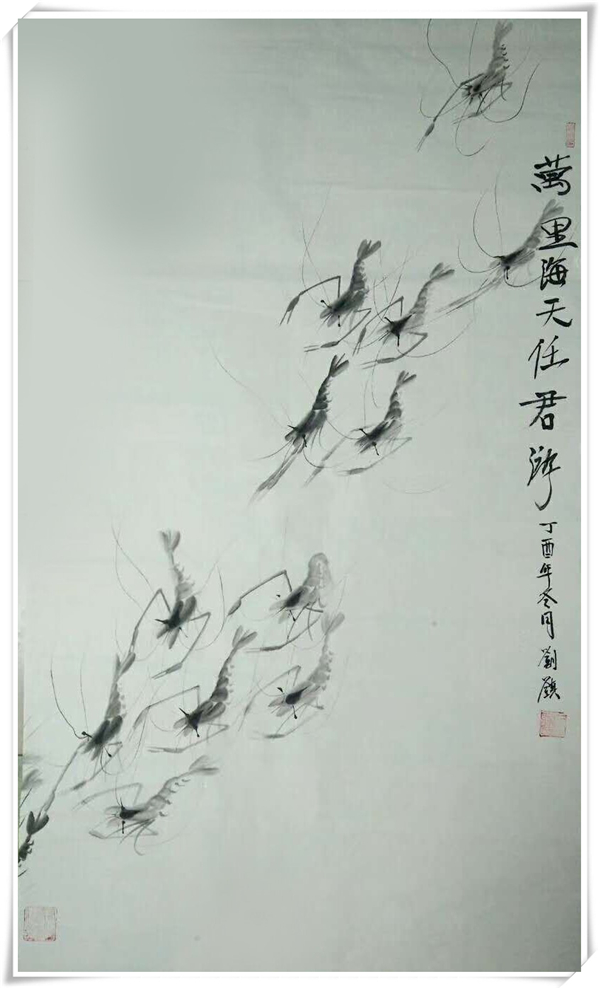 萬里海天任君游
丁酉年冬月 劉